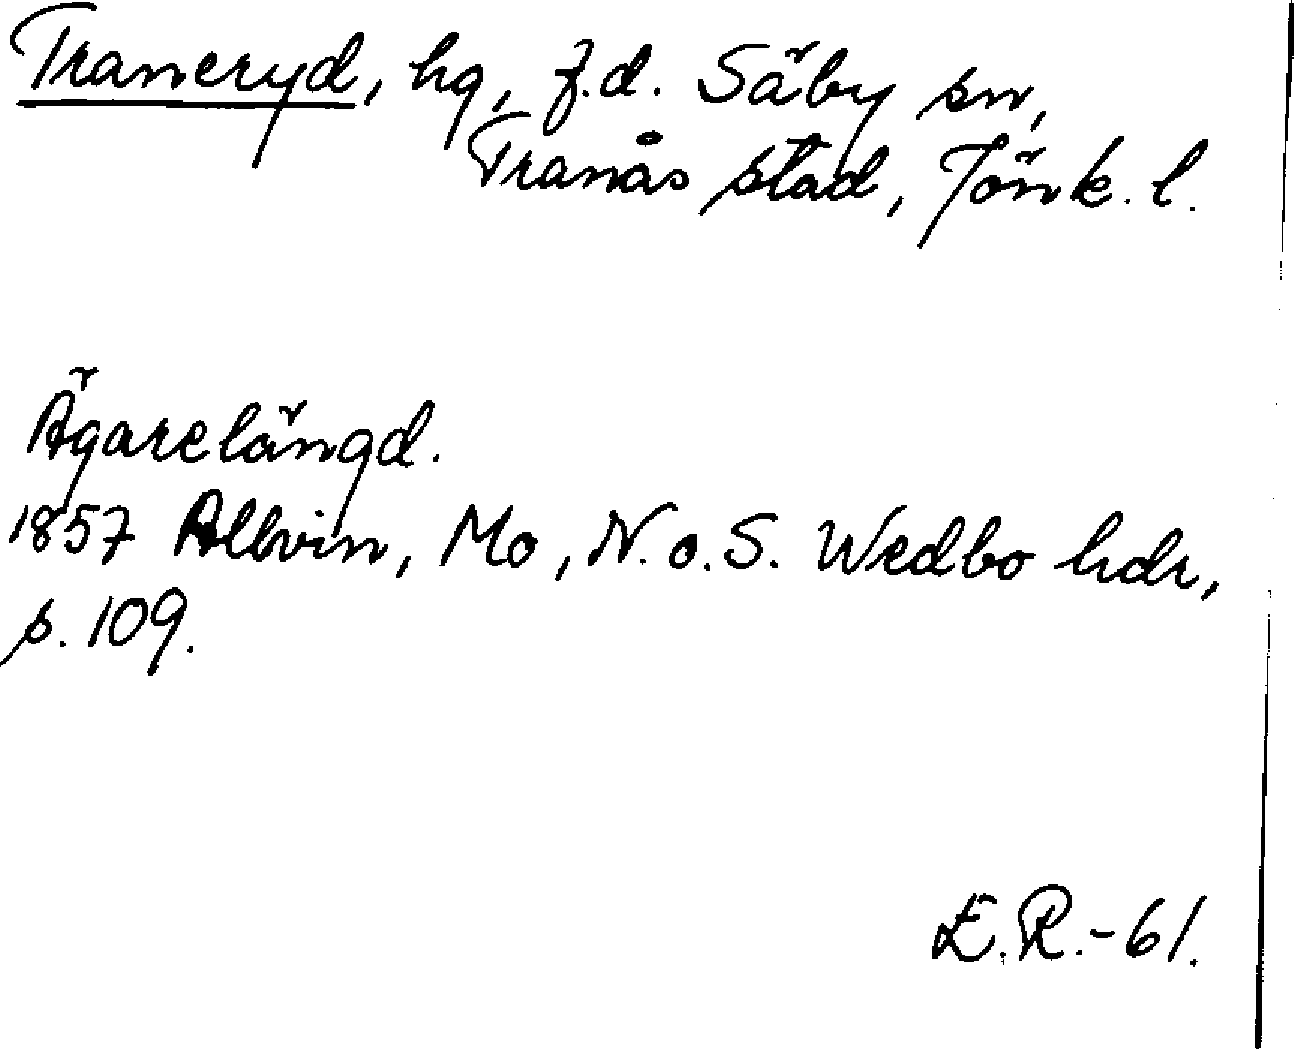 Traneryd, hg, f.d. Säby sn,
Tranås stad, Jönk. l.
Ägarelängd.
1857 Allvin, Mo, N. o. S. Wedbo hdr,
s. 109.
E.R.-61.